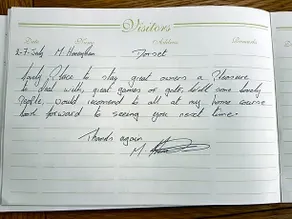 Visitors
Date Name Address Remarks
2-7 July M. Dorset
Lovely Place to stay great owners a Pleasure
to deal with, great games of golf, met some lovely
people, would recomend to all at my home course
look forward to seeing you next time.
Thanks again
M.